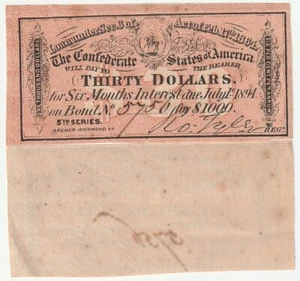 Loan under Sec. 6 of Act of Feb. 17th 1864.
The Confederate States of America
WILL PAY TO THE BEARER
THIRTY DOLLARS,
for Six Months Interest due July 1st 1894
on Bond No. 5750 for $1000.
Ro. Tyler
5TH SERIES. REGr.
ARCHER, RICHMOND, VA.
5750